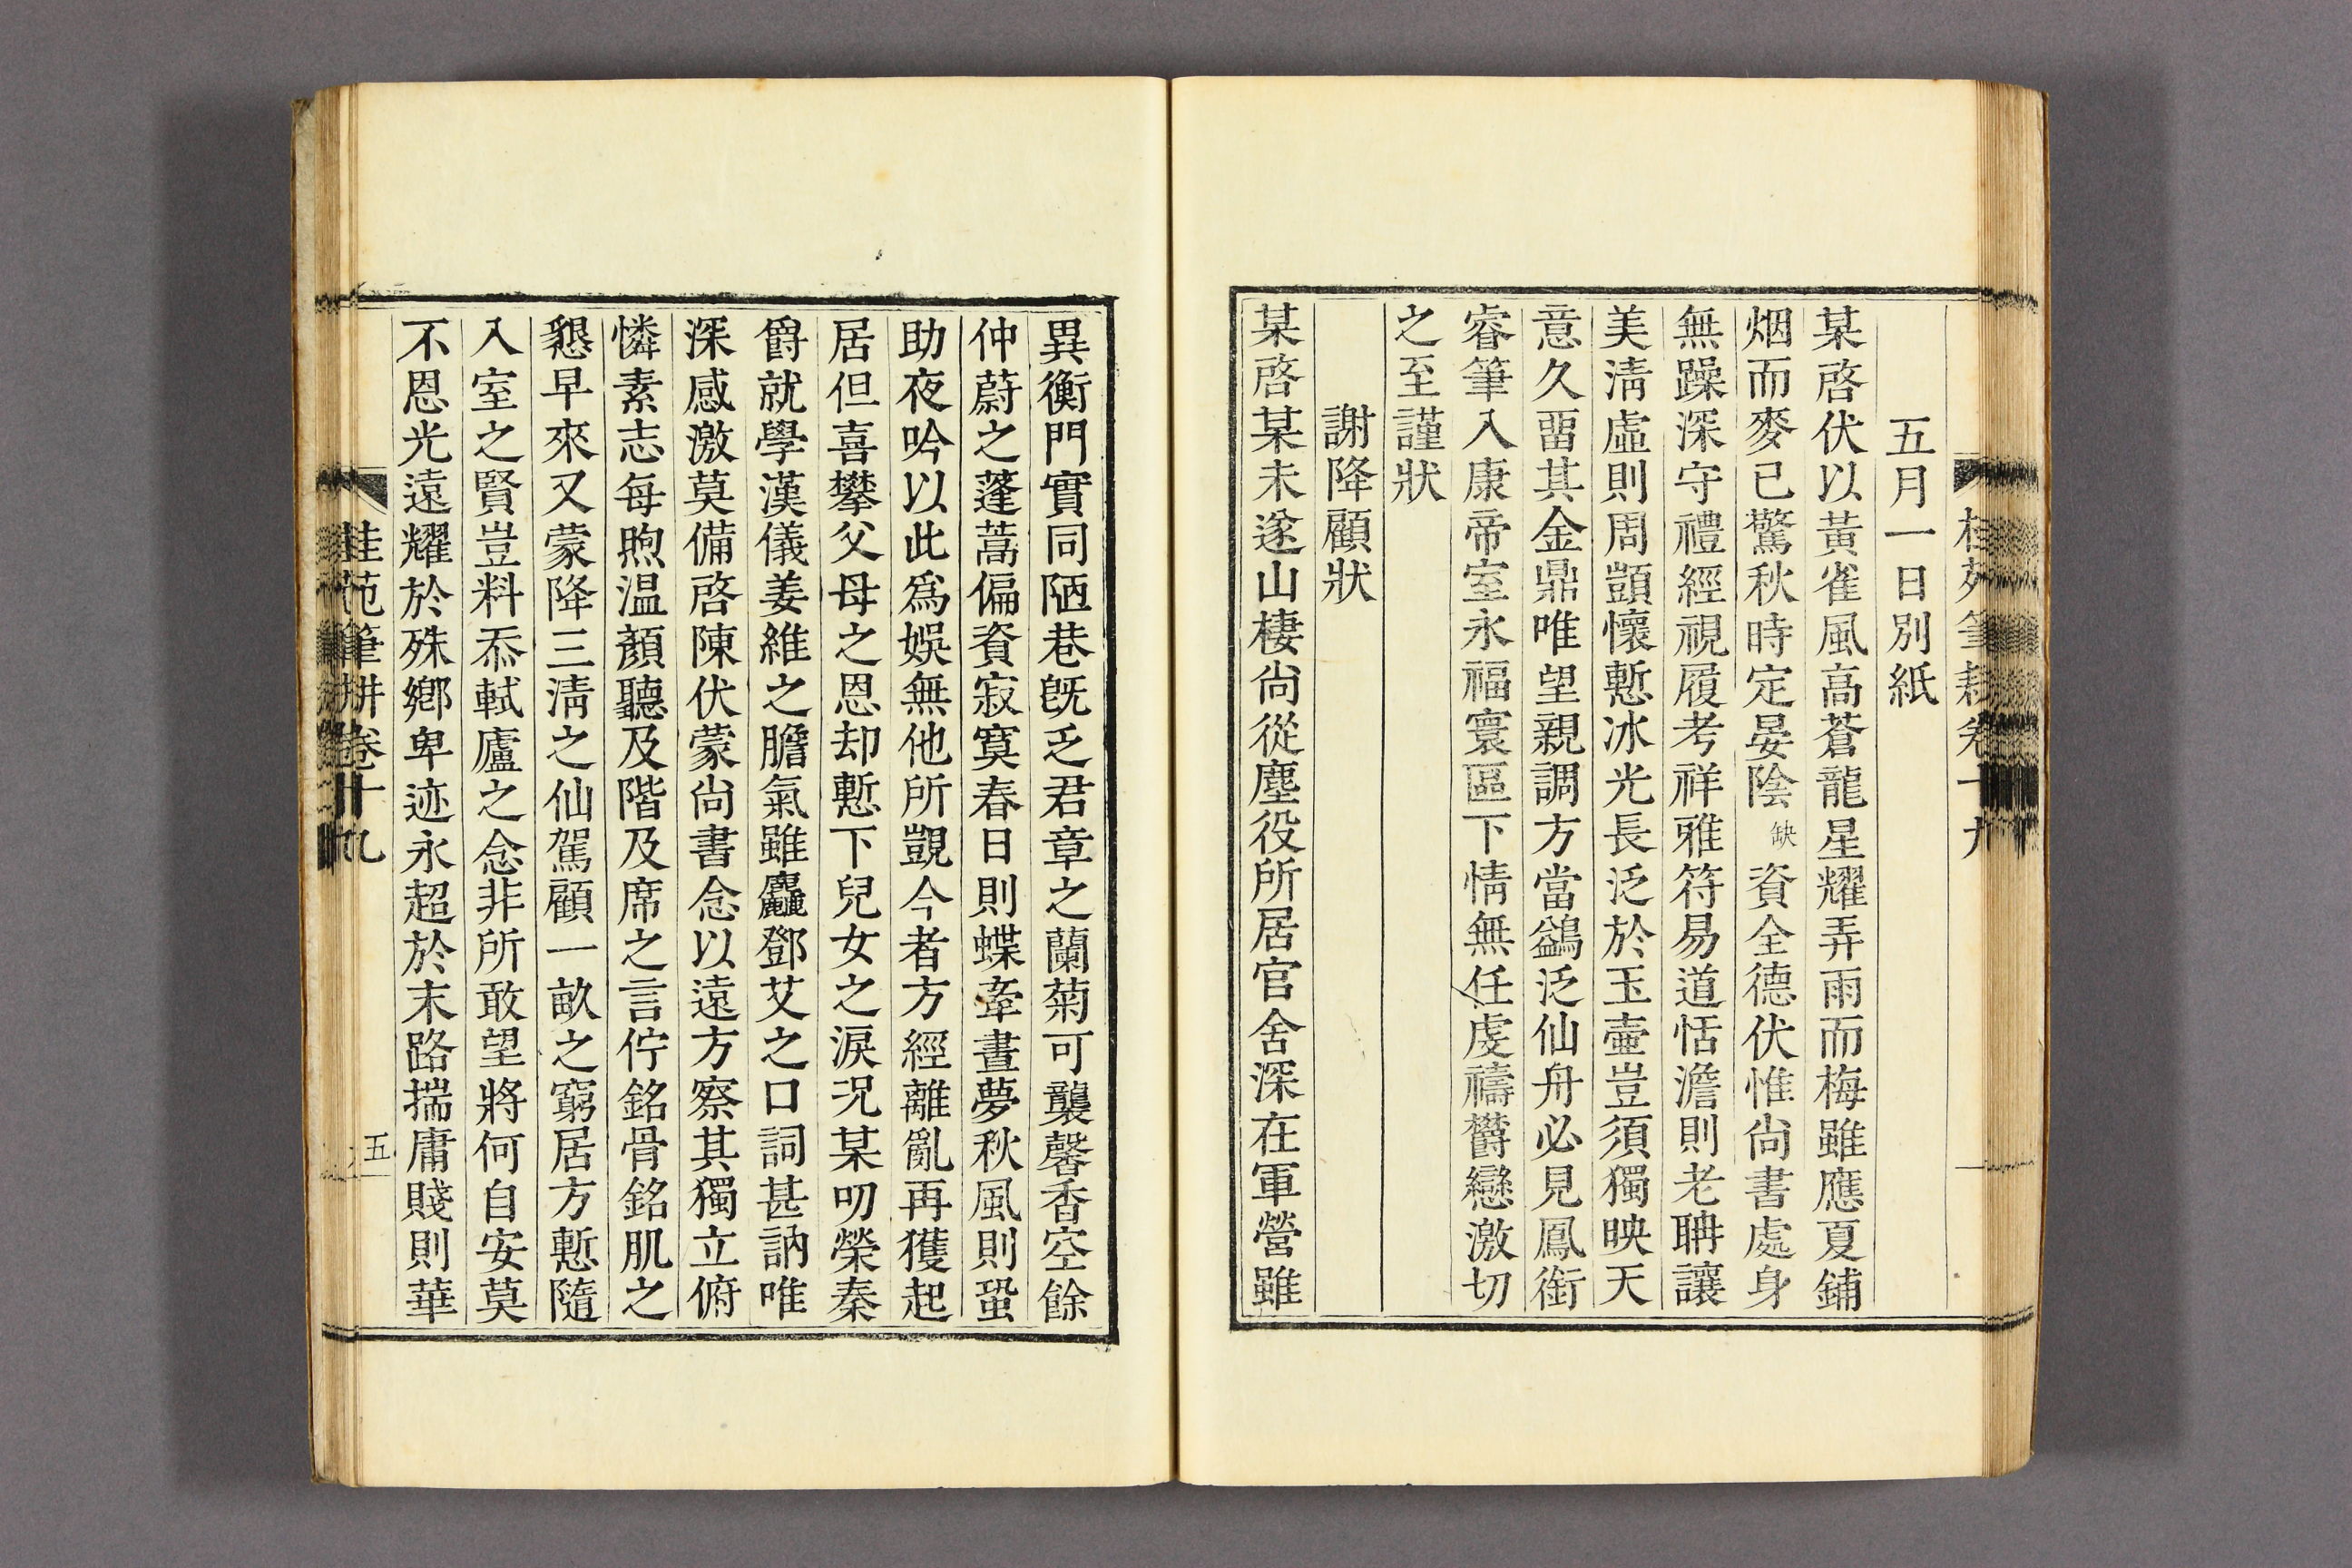 五月一日別紙
某啓伏以黃雀風高蒼龍星耀弄雨而梅雖應夏鋪
烟而麥已驚秋時定晏陰缺資全德伏惟尙書處身
無躁深守禮經視履考祥雅符易道恬澹則老聃讓
美淸虛則周顗懷慙冰光長泛於玉壷豈須獨映天
意久畱其金鼎唯望親調方當鷁泛仙舟必見鳳銜
睿筆入康帝室永福寰區下情無任虔禱欝戀激切
之至謹狀
謝降顧狀
某啓某未遂山棲尙從塵役所居官舍深在軍營雖
異衡門實同陋巷旣乏君章之蘭菊可襲馨香空餘
仲蔚之蓬蒿偏資寂寞春日則蝶牽晝夢秋風則蛩
助夜吟以此爲娛無他所覬今者方經離亂再獲起
居但喜攀父母之恩却慙下兒女之淚況某叨榮秦
爵就學漢儀姜維之膽氣雖麤鄧艾之口詞甚訥唯
深感激莫備啓陳伏蒙尙書念以遠方察其獨立俯
憐素志每煦温顏聽及階及席之言佇銘骨銘肌之
懇早來又蒙降三淸之仙駕顧一畝之窮居方慙隨
入室之賢豈料忝軾廬之念非所敢望將何自安莫
不恩光遠耀於殊鄕卑迹永超於末路揣庸賤則華
桂苑筆耕卷十九
五